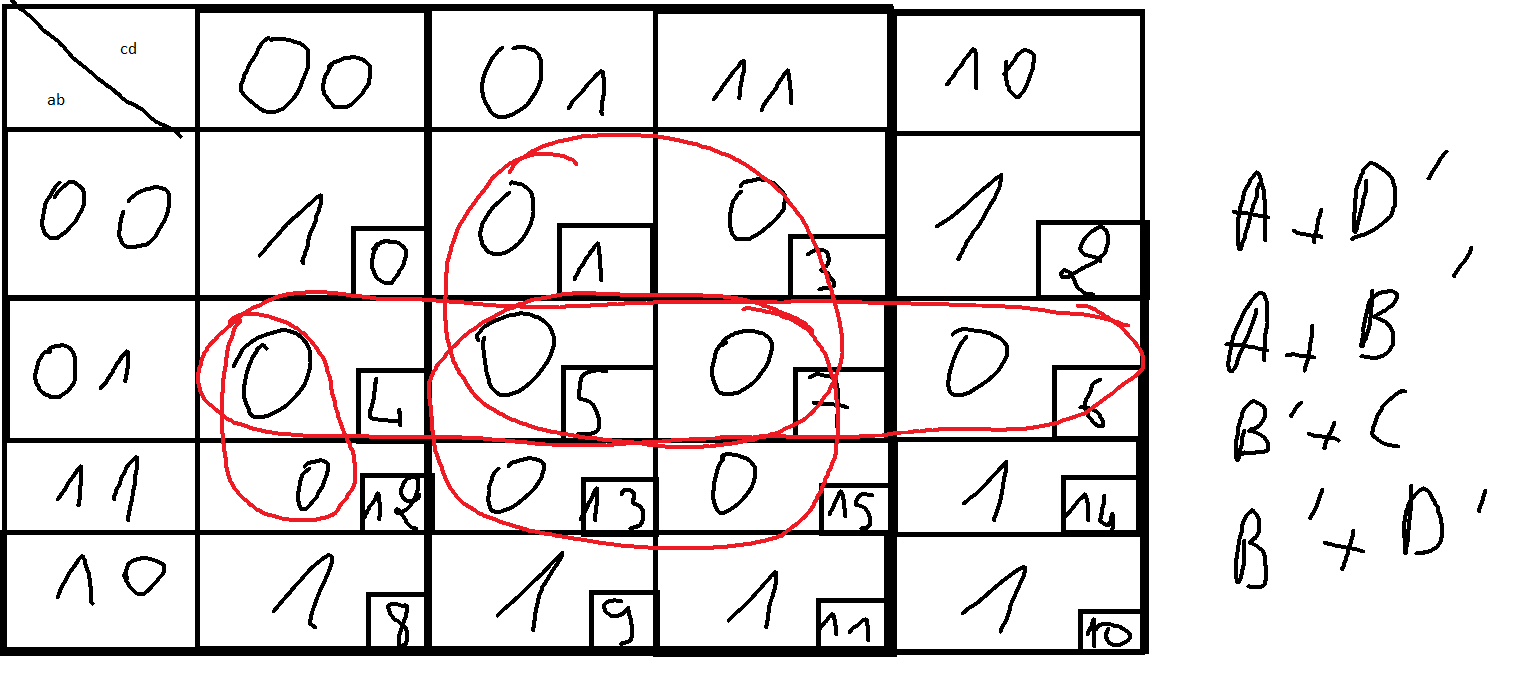 cd
ab
00 01 11 10
00 1 0 0 0 1 3 1 2
01 0 4 0 5 0 7 0 6
11 0 12 0 13 0 15 1 14
10 1 8 1 9 1 11 1 10
A + D'
A + B'
B' + C
B' + D'